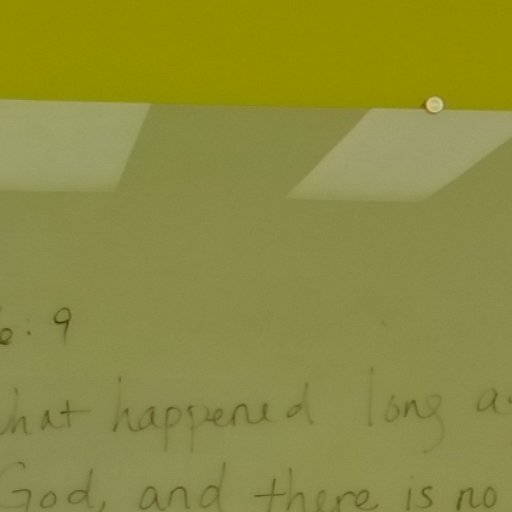 6:9
what happened long a
God, and there is no